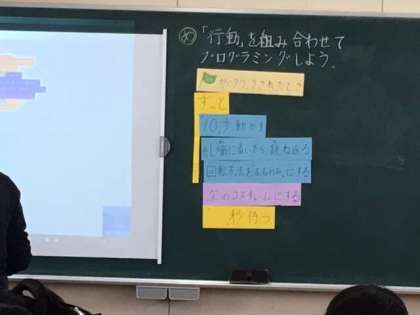 め 「行動」を組み合わせて
プログラミングしよう。
がクリックされたとき
ずっと
10歩動かす
もし端に着いたら、跳ね返る
回転方法を左右のみにする
次のコスチュームにする
秒待つ